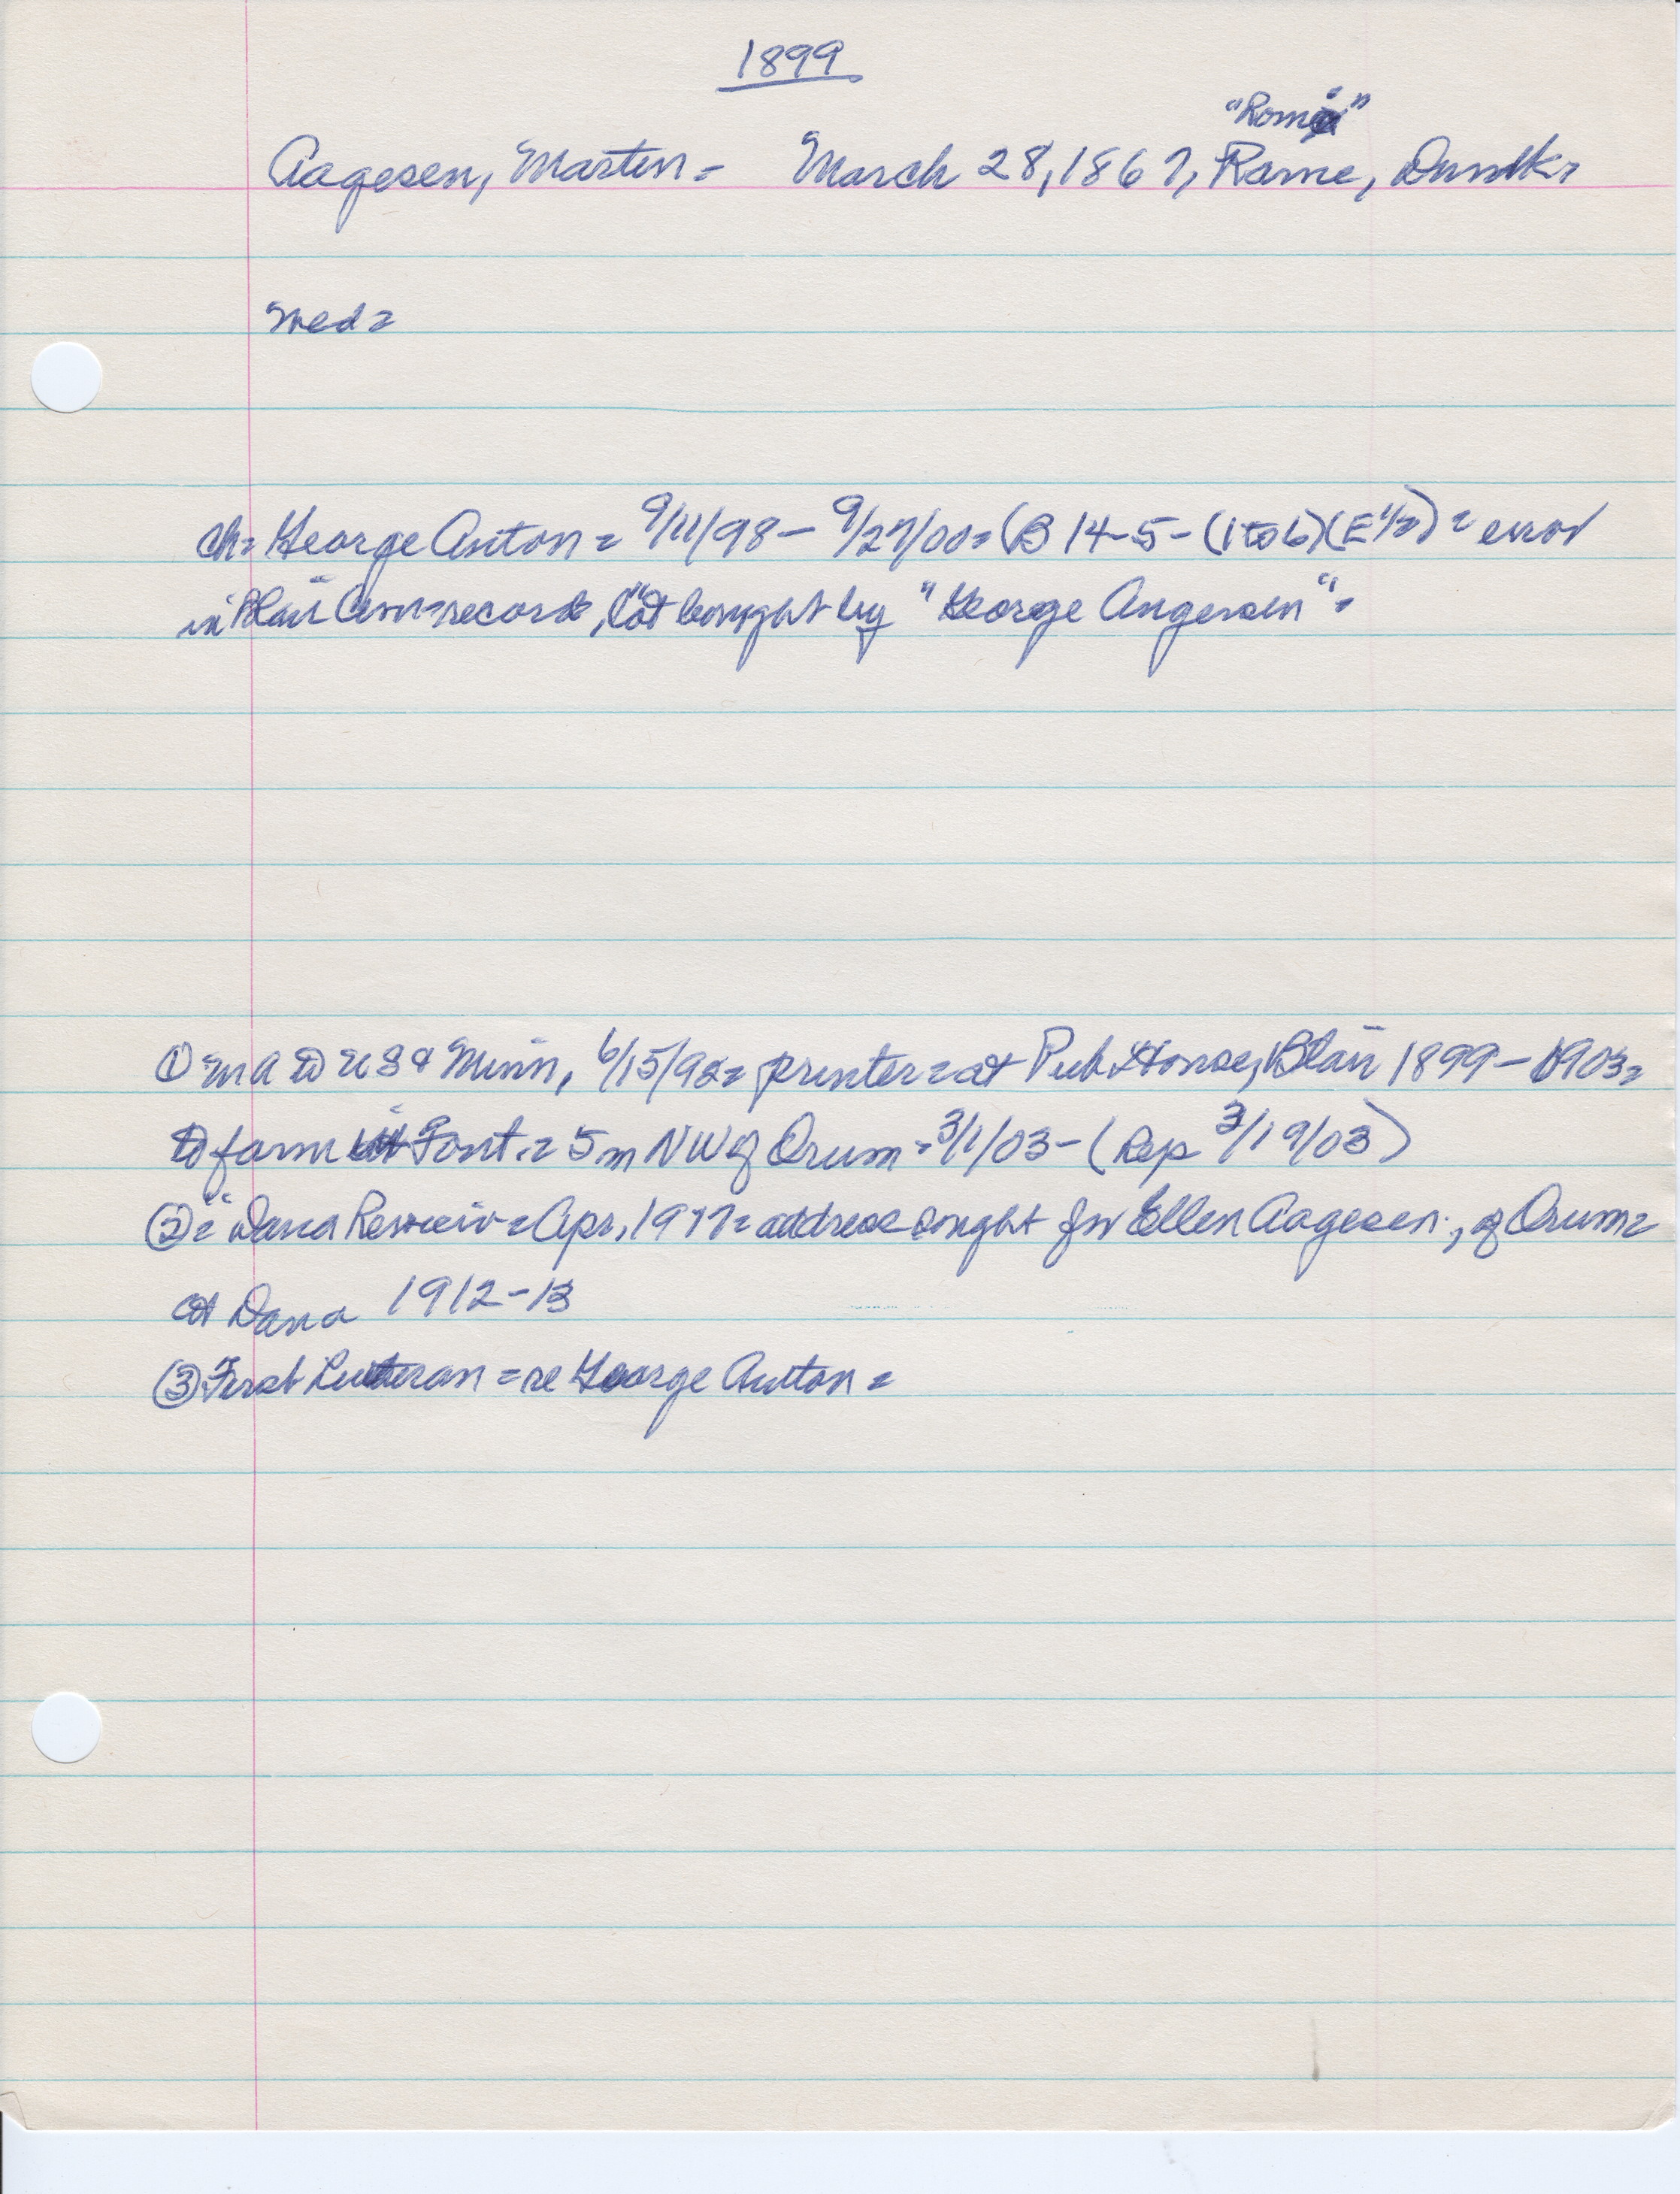 1899
"Romi"
Aagesen, Martin = March 28, 1867, Rame, Dnmk =
med =
ch = George Anton = 9/11/98 - 9/27/00 = (B 14-5-(1 to 6)(E 1/2) = error
in Blair Cem = records, lot bought by "George Angersen" =
① MA to US & Minn, 6/15/92 = printer = at Pub House, Blair 1899-1903 =
to farm = 5 m NW of Orum = 3/1/03 - (Rep 3/19/03)
② = Dana Review = Apr, 1977 = address sought for Ellen Aagesen, of Orum =
at Dana 1912-13
③ First Lutheran = re George Anton =